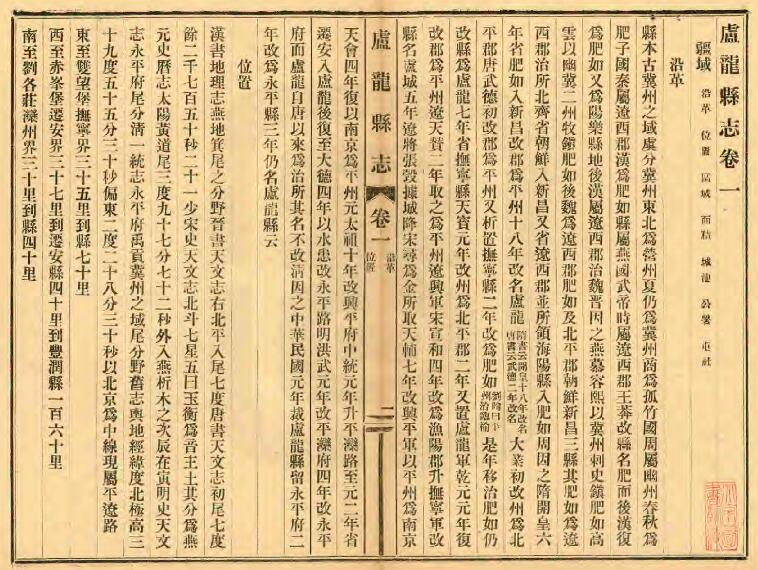 盧龍縣志卷一
疆域　沿革　位置　區域　面積　城池　公署　屯社
沿革
縣本古冀州之域虞分冀州東北為營州夏仍為冀州商為孤竹國周屬幽州春秋為
肥子國秦屬遼西郡漢為肥如縣屬燕國武帝時屬遼西郡王莽改縣名肥而後漢復
為肥如又為陽樂縣地後漢屬遼西郡治魏晉因之燕慕容熙以冀州刺史鎮肥如高
雲以幽冀二州牧鎮肥如後魏為遼西郡肥如及北平郡朝鮮新昌三縣其肥如為遼
西郡治所北齊省朝鮮入新昌又省遼西郡並所領海陽縣入肥如周因之隋開皇六
年省肥如入新昌改郡為平州十八年改名盧龍隋書云開皇十八年改名唐書云武德二年改名大業初改州為北
平郡唐武德初改郡為平州又析置撫寧縣二年改為肥如是年移治肥如仍
改縣為盧龍七年省撫寧縣天寶元年改州為北平郡二年又置盧龍軍乾元元年復
改郡為平州遼天贊二年取之為平州遼興軍宋宣和四年改為漁陽郡升撫寧軍改
縣名盧城五年遼將張瑴據城降宋尋為金所取天輔七年改興平軍以平州為南京
盧龍縣志　卷一　沿革　位置　一
天會四年復以南京為平州元太祖十年改興平府中統元年升平灤路至元二年省
遷安入盧龍後復至大德四年以水患改永平路明洪武元年改平灤府四年改永平
府而盧龍自唐以來為治所其名不改清因之中華民國元年裁盧龍縣留永平府二
年改為永平縣三年仍名盧龍縣云
位置
漢書地理志燕地箕尾之分野晉書天文志右北平入尾七度唐書天文志初尾七度
餘二千七百五十秒二十一少宋史天文志北斗七星五曰玉衡為音主土其分為燕
元史曆志太陽黃道尾三度九十七分七十二秒外入燕析木之次辰在寅明史天文
志永平府尾分清一統志永平府禹貢冀州之域尾分野舊志輿地經緯度北極高三
十九度五十五分三十秒偏東二度二十八分三十秒以北京為中線現屬平遼路
東至雙望堡撫寧界三十五里到縣七十里
西至赤峯堡遷安界三十七里到遷安縣四十里到豐潤縣一百六十里
南至劉各莊灤州界三十里到縣四十里